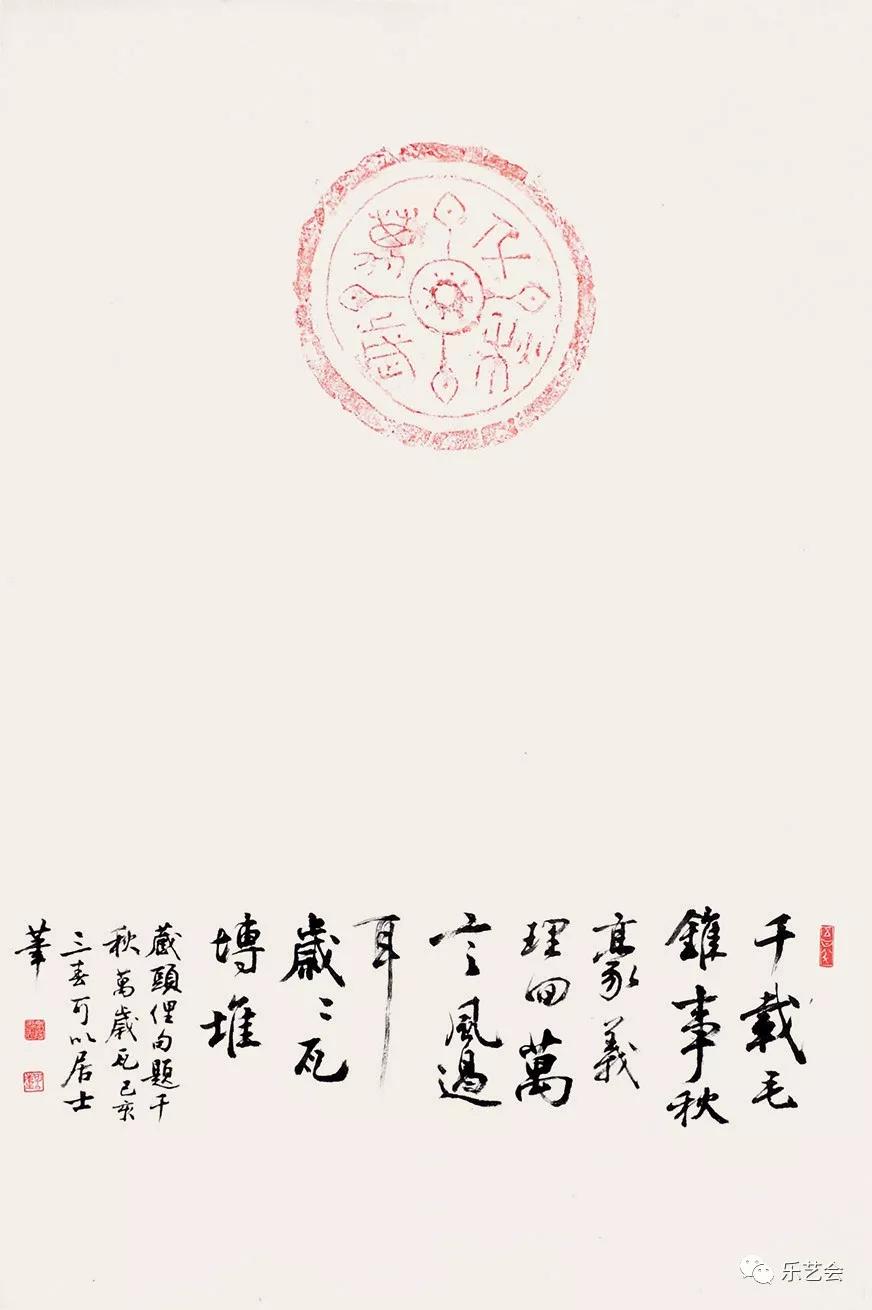 千秋
萬歲
千載毛
錐事秋
豪義
理回萬
言風過
耳
歲〻瓦
塼堆
藏頭俚句題千
秋萬歲瓦己亥
三春可以居士
筆
乐艺会